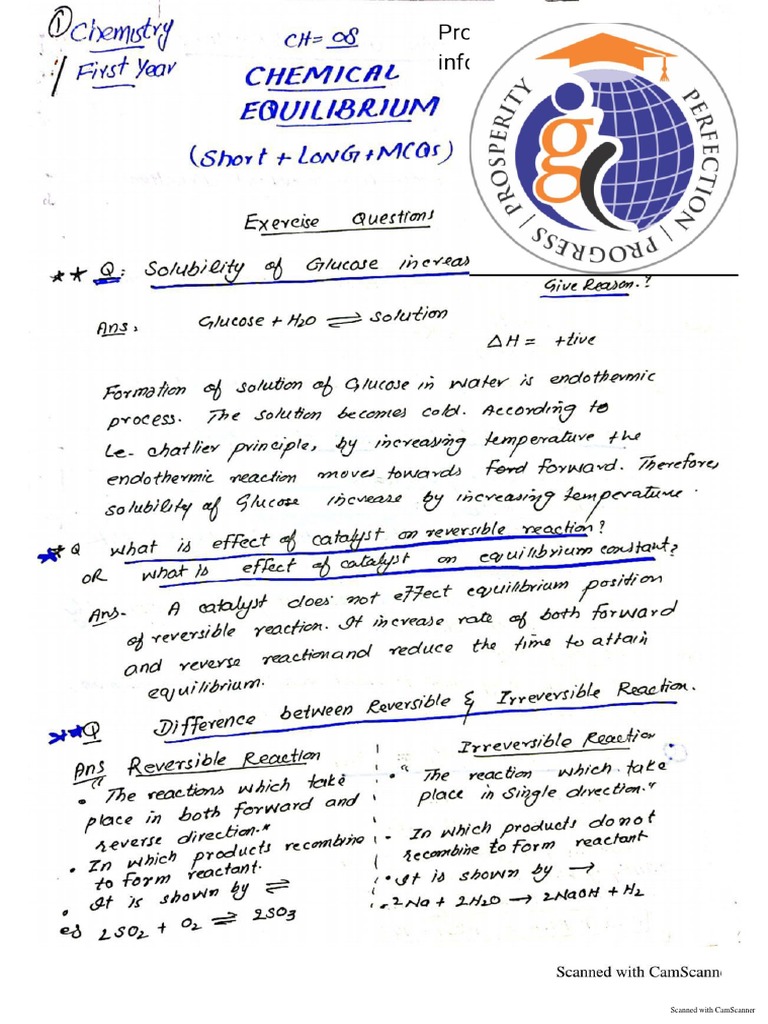 ① Chemistry
First Year
CH= 08
CHEMICAL
EQUILIBRIUM
(Short + LONG + MCQs)
Pro
info
PROSPERITY | PROGRESS | PERFECTION
Exercise Questions
** Q: Solubility of Glucose increas
Give Reason.?
Ans, Glucose + H2O ⇌ Solution
ΔH = +tive
Formation of solution of Glucose in water is endothermic
process. The solution becomes cold. According to
Le-chatlier principle, by increasing temperature the
endothermic reaction moves towards forward. Therefore
solubility of Glucose increase by increasing temperature.
** Q what is effect of catalyst on reversible reaction?
OR what is effect of catalyst on equilibrium constant?
Ans- A catalyst does not effect equilibrium position
of reversible reaction. It increase rate of both forward
and reverse reaction and reduce the time to attain
equilibrium.
**Q Difference between Reversible & Irreversible Reaction.
Ans Reversible Reaction
• "The reactions which take
place in both forward and
reverse direction."
• In which products recombine
to form reactant.
• It is shown by ⇌
eg 2SO2 + O2 ⇌ 2SO3
Irreversible Reaction
• "The reaction which take
place in Single direction."
- In which products do not
recombine to form reactant
• It is shown by →
. 2Na + 2H2O → 2NaOH + H2
Scanned with CamScann
Scanned with CamScanner